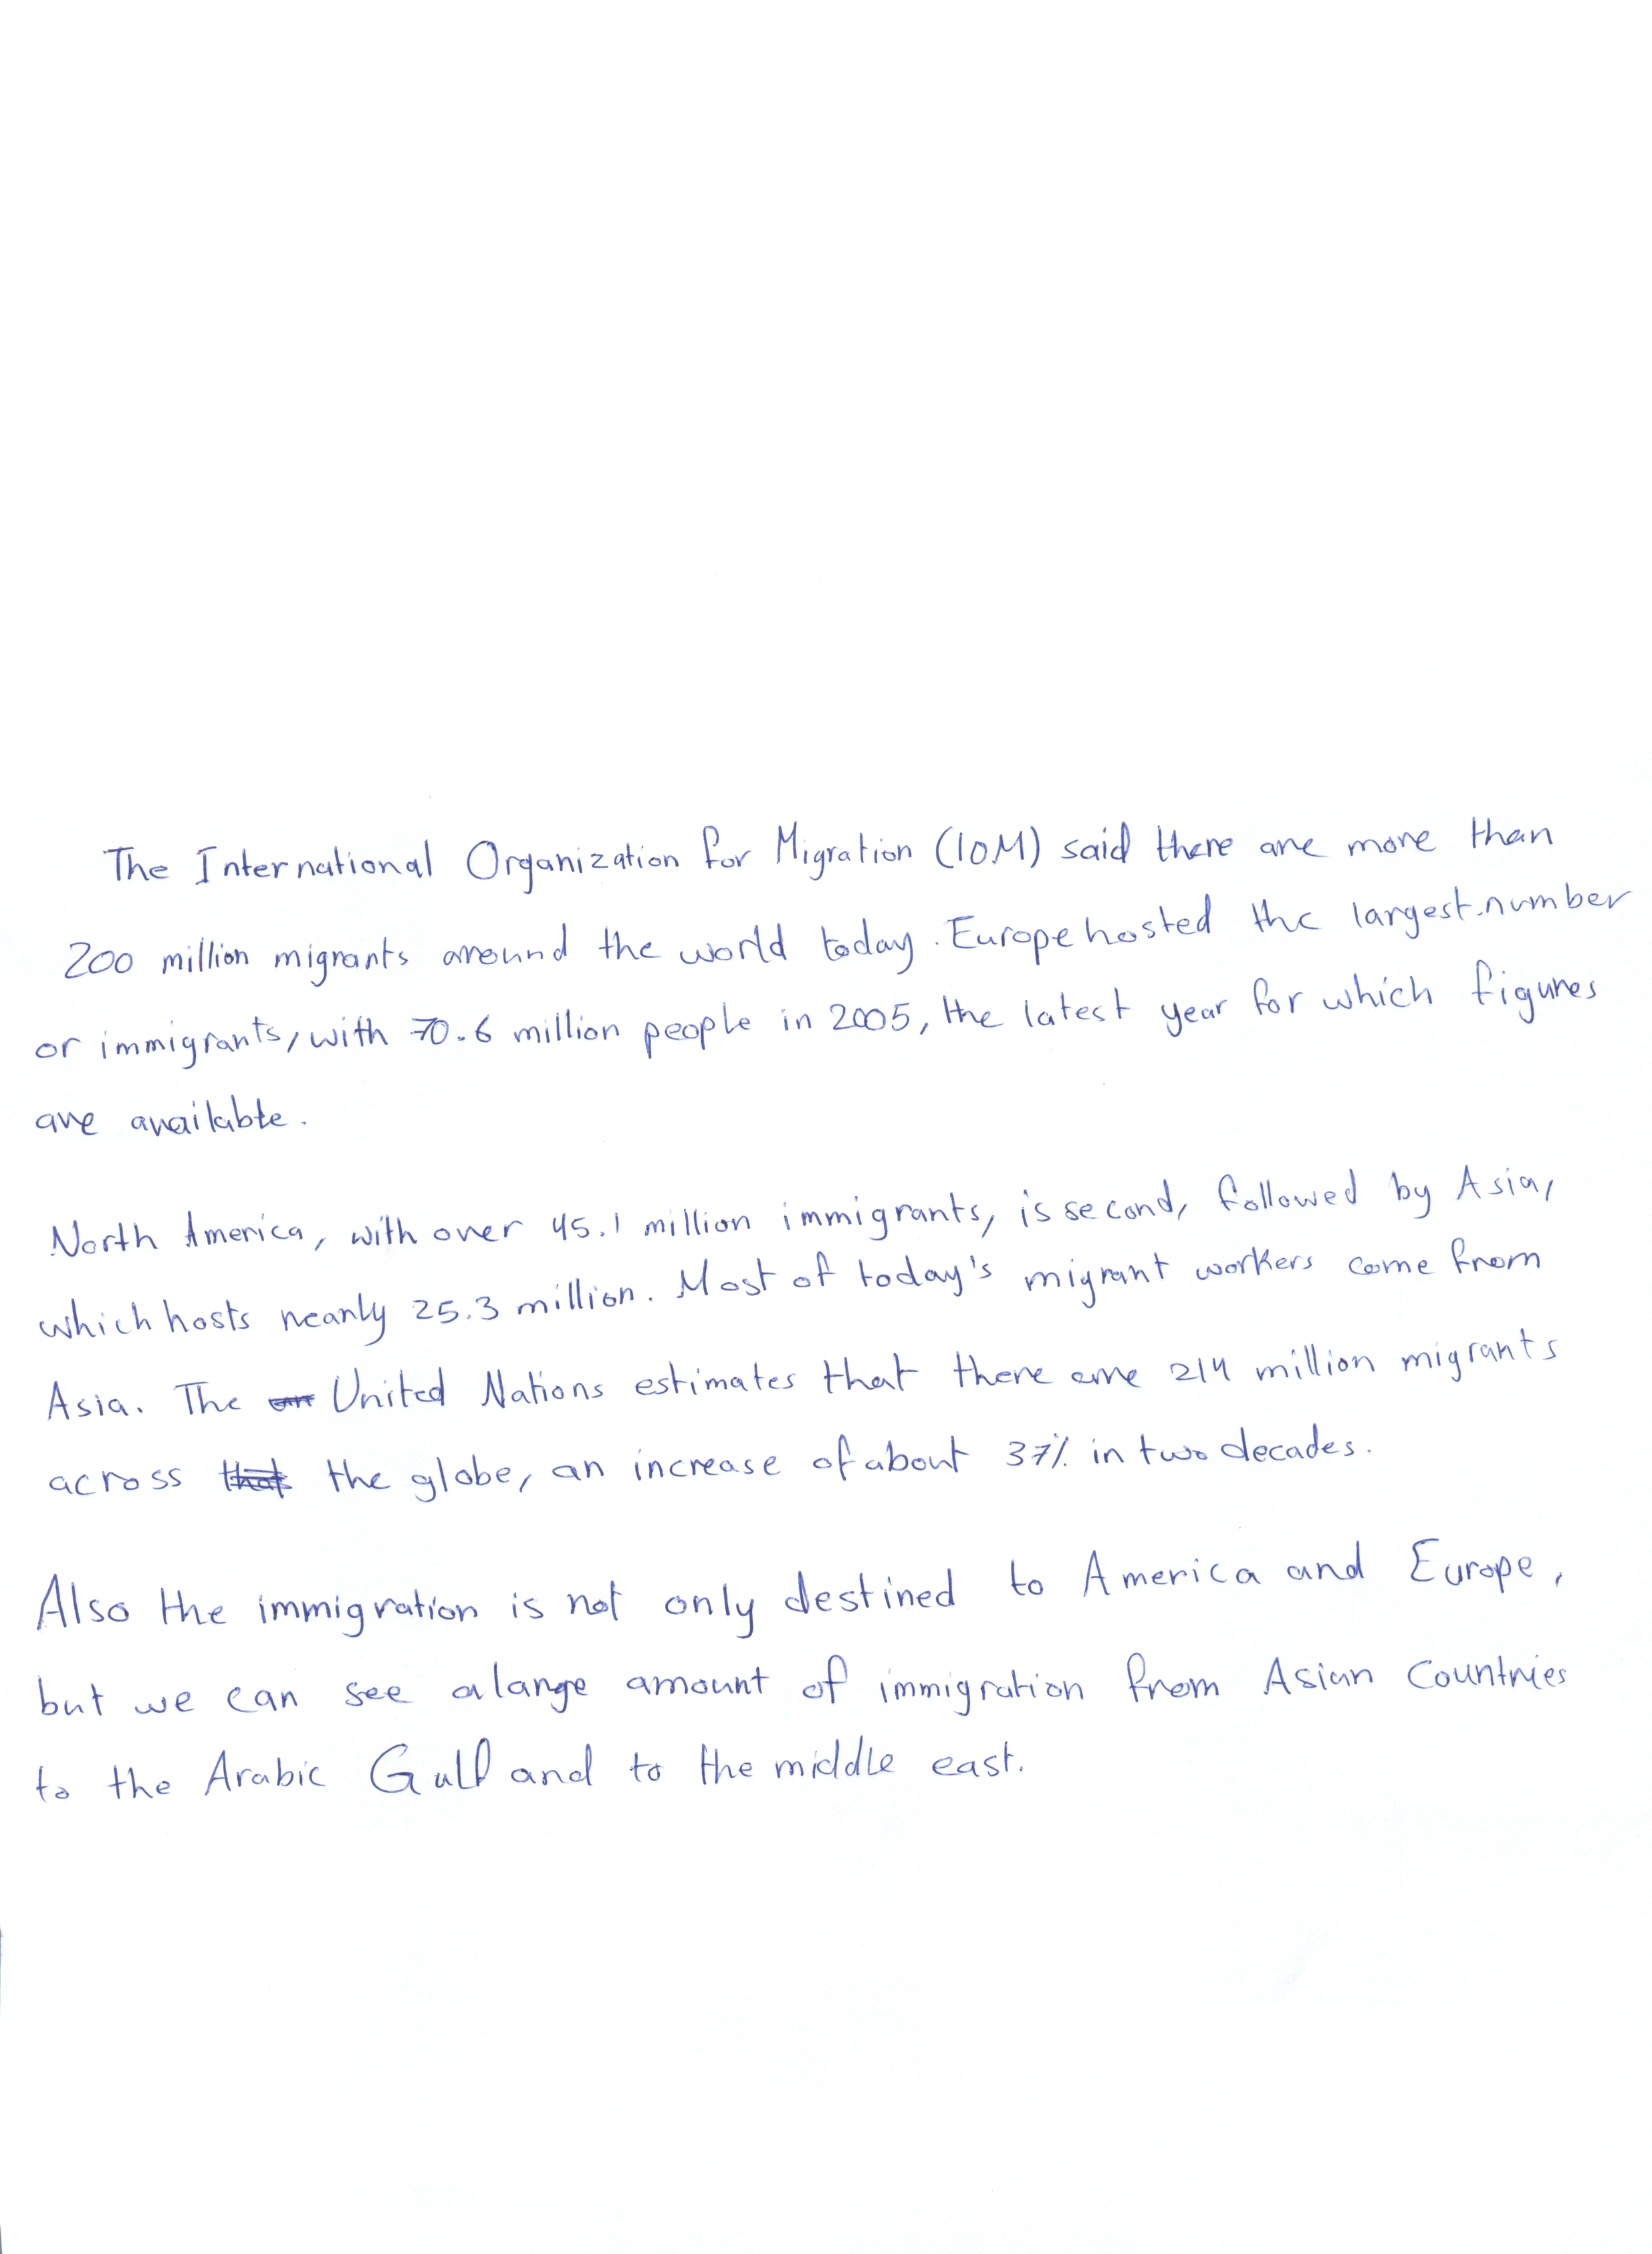 The International Organization for Migration (IOM) said there are more than
200 million migrants around the world today. Europe hosted the largest number
or immigrants, with 70.6 million people in 2005, the latest year for which figures
are available.
North America, with over 45.1 million immigrants, is second, followed by Asia,
which hosts nearly 25.3 million. Most of today's migrant workers come from
Asia. The United Nations estimates that there are 214 million migrants
across that the globe, an increase of about 37% in two decades.
Also the immigration is not only destined to America and Europe,
but we can see a large amount of immigration from Asian Countries
to the Arabic Gulf and to the middle east.